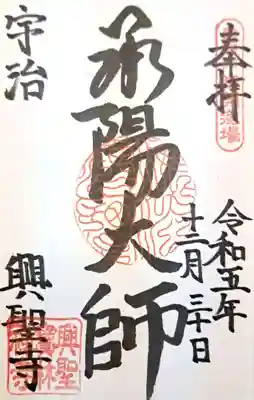 奉拝
令和五年
十二月三十日
承陽大師
宇治
興聖寺